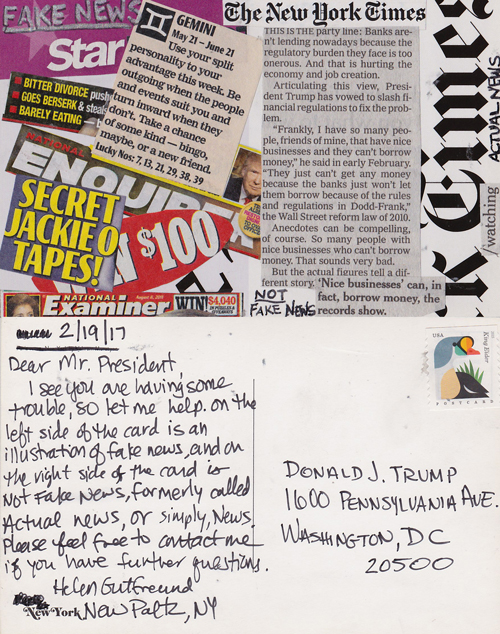 FAKE NEWS
Star
BITTER DIVORCE push
GOES BERSERK & steal
BARELY EATING
GEMINI
May 21 – June 21
Use your split
personality to your
advantage this week. Be
outgoing when the people
and events suit you and
turn inward when they
don't. Take a chance
of some kind — bingo,
maybe, or a new friend.
Lucky Nos: 7, 13, 21, 29, 38, 39
NATIONAL
ENQUIRER
SECRET
JACKIE O
TAPES!
WIN $100
NATIONAL
Examiner
WIN $4,040
The New York Times
THIS IS THE party line: Banks are-
n't lending nowadays because the
regulatory burden they face is too
onerous. And that is hurting the
economy and job creation.
Articulating this view, Presi-
dent Trump has vowed to slash fi-
nancial regulations to fix the prob-
lem.
“Frankly, I have so many peo-
ple, friends of mine, that have nice
businesses and they can't borrow
money,” he said in early February.
“They just can't get any money
because the banks just won't let
them borrow because of the rules
and regulations in Dodd-Frank,”
the Wall Street reform law of 2010.
Anecdotes can be compelling,
of course. So many people with
nice businesses who can't borrow
money. That sounds very bad.
But the actual figures tell a dif-
ferent story. 'Nice businesses' can, in
fact, borrow money, the
records show.
NOT
FAKE NEWS
ACTUAL NEWS
k Times
/watching
2/19/17
Dear Mr. President,
I see you are having some
trouble, so let me help. On the
left side of the card is an
illustration of fake news, and on
the right side of the card is
Not Fake News, formerly called
Actual news, or simply, News.
Please feel free to contact me
if you have further questions.
Helen Gutfreund
New York New Paltz, NY
USA
King Eider
POSTCARD
DONALD J. TRUMP
1600 PENNSYLVANIA AVE.
WASHINGTON, DC
20500